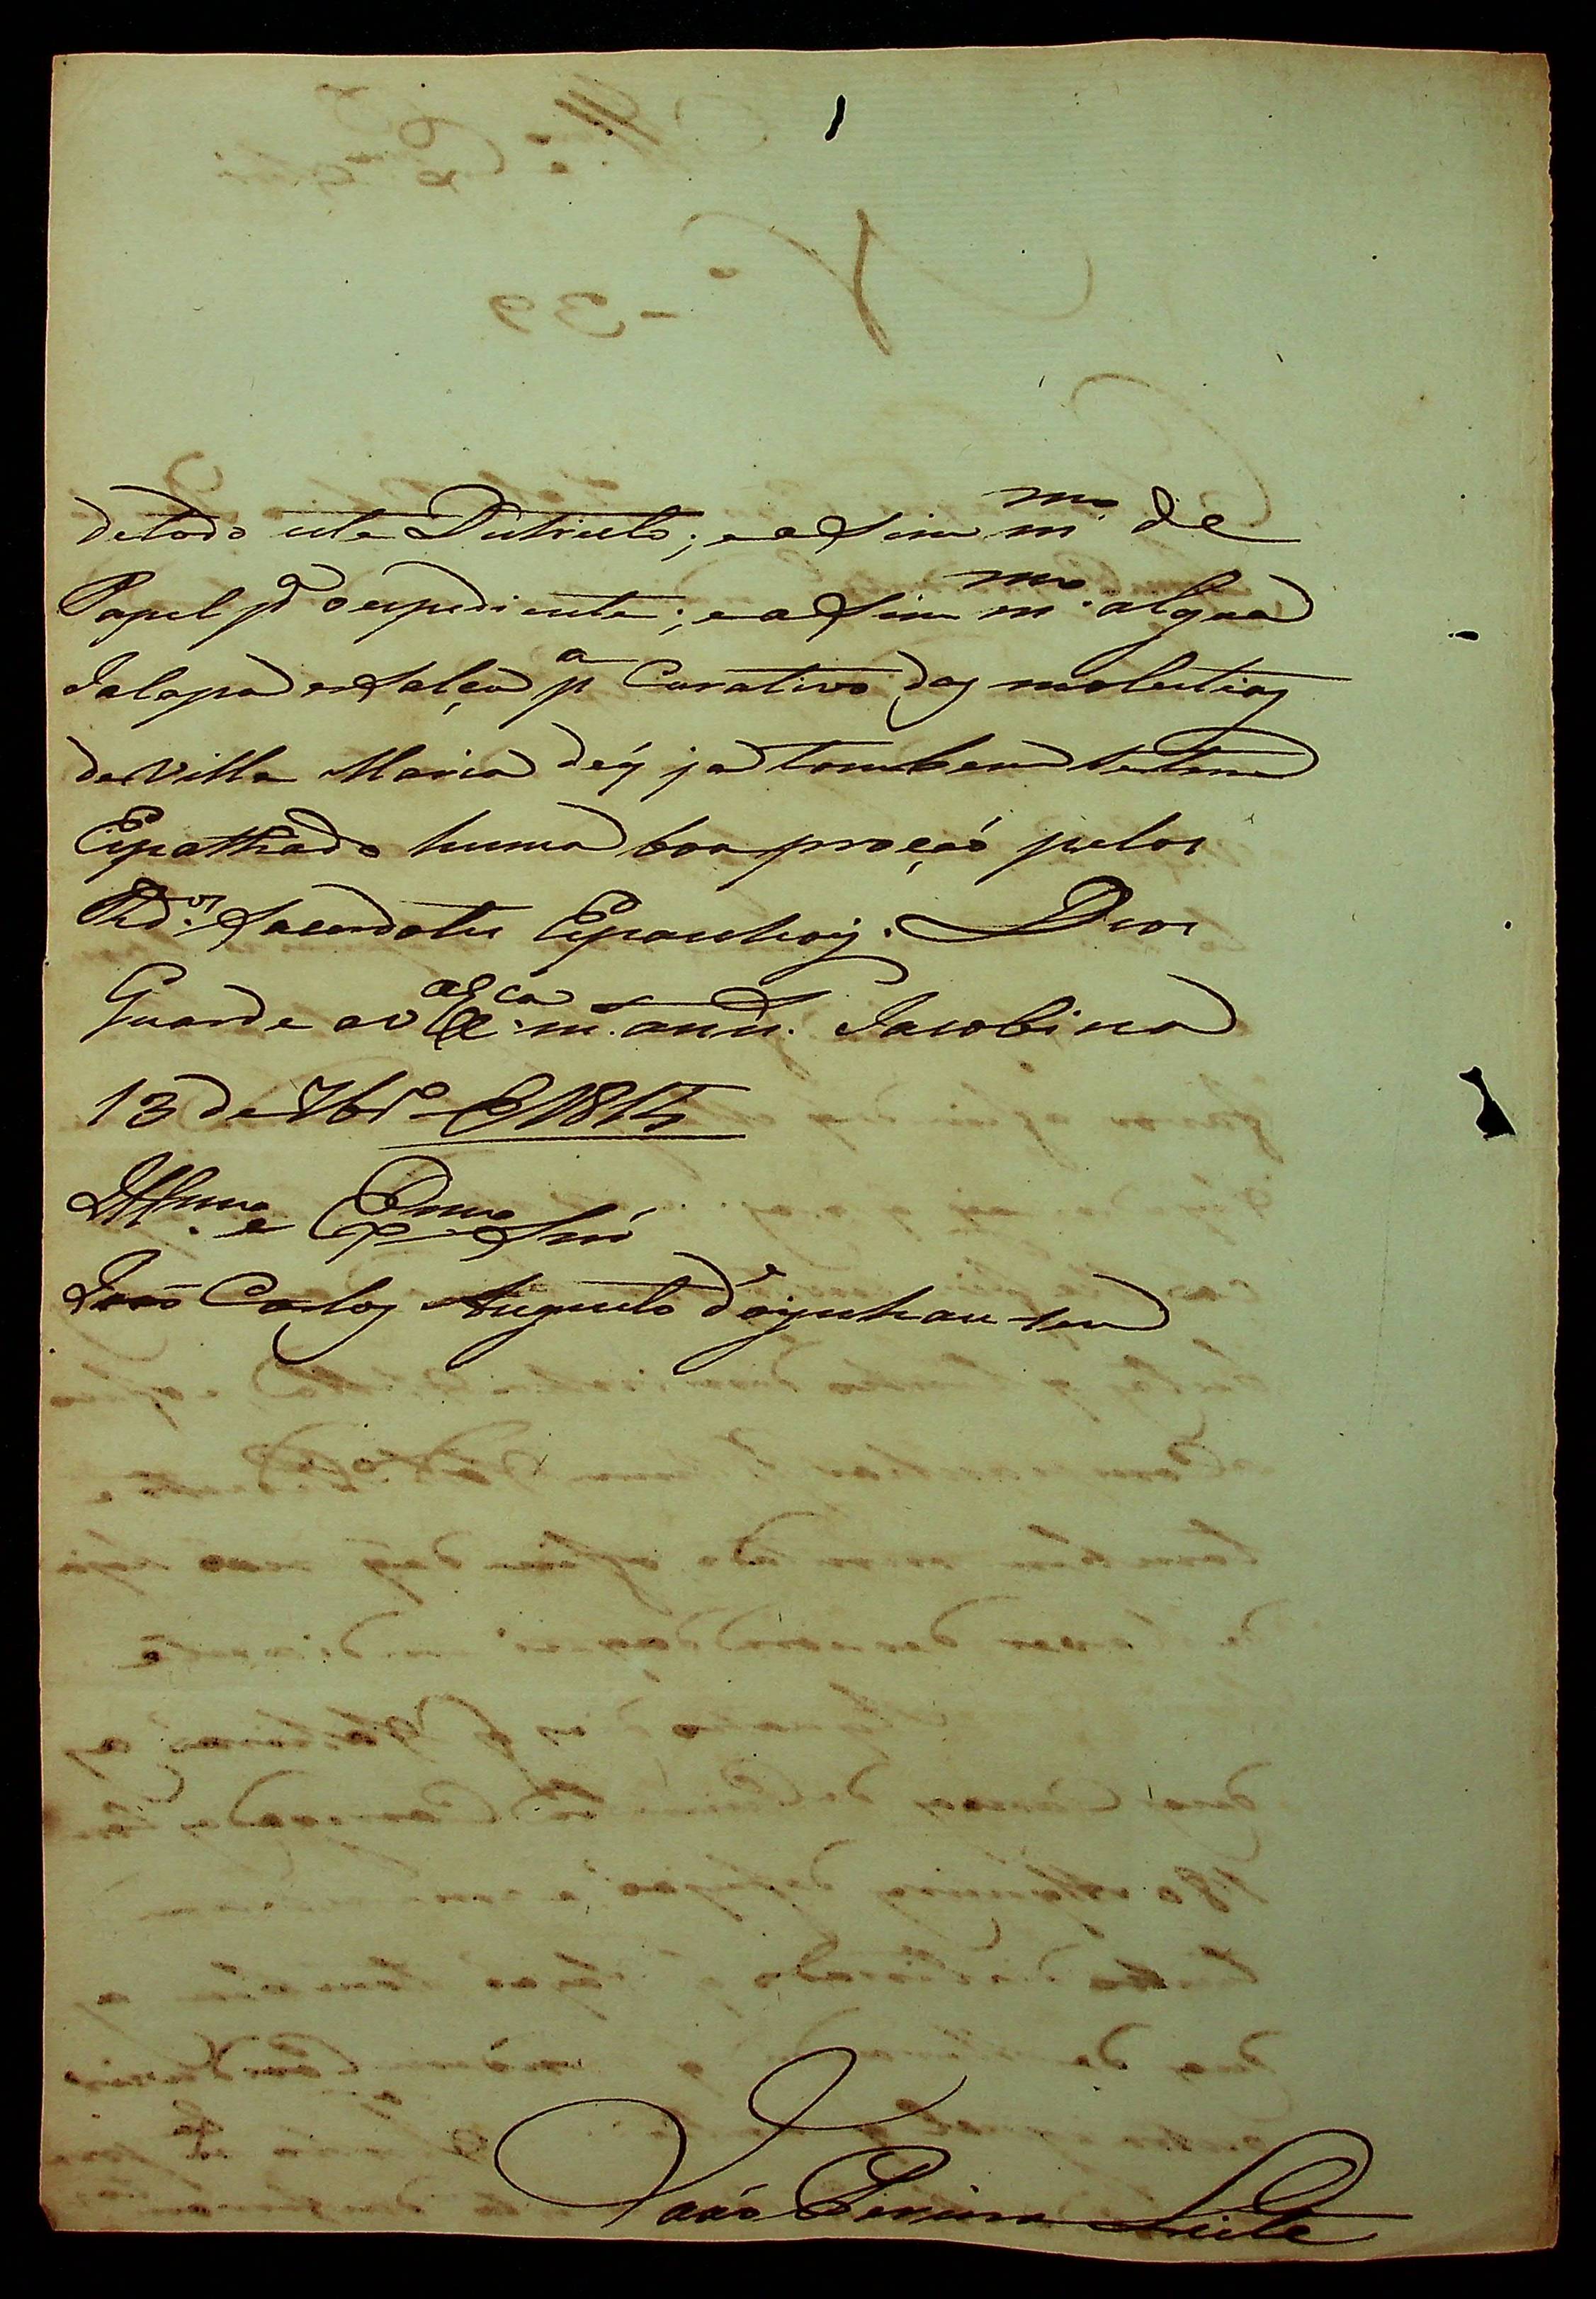 detodo este Districto; e assim m.mo de
Papel p.a o expediente; e assim m.mo algua
Jalapa e salça p.a Curativo das molestias
de Villa Maria deq ja tambem se tem
Espalhado huma boa proçaõ pelos
Rd.os Sacerdotes Espanhois. Deos
Guarde a V Ex.ca m.s ann.s Jacobina
13 de 7br.o de 1815
Ill.mo e Ex.mo Snr
João Carlos Augusto d'Oeynhausen
João Pereira Leite